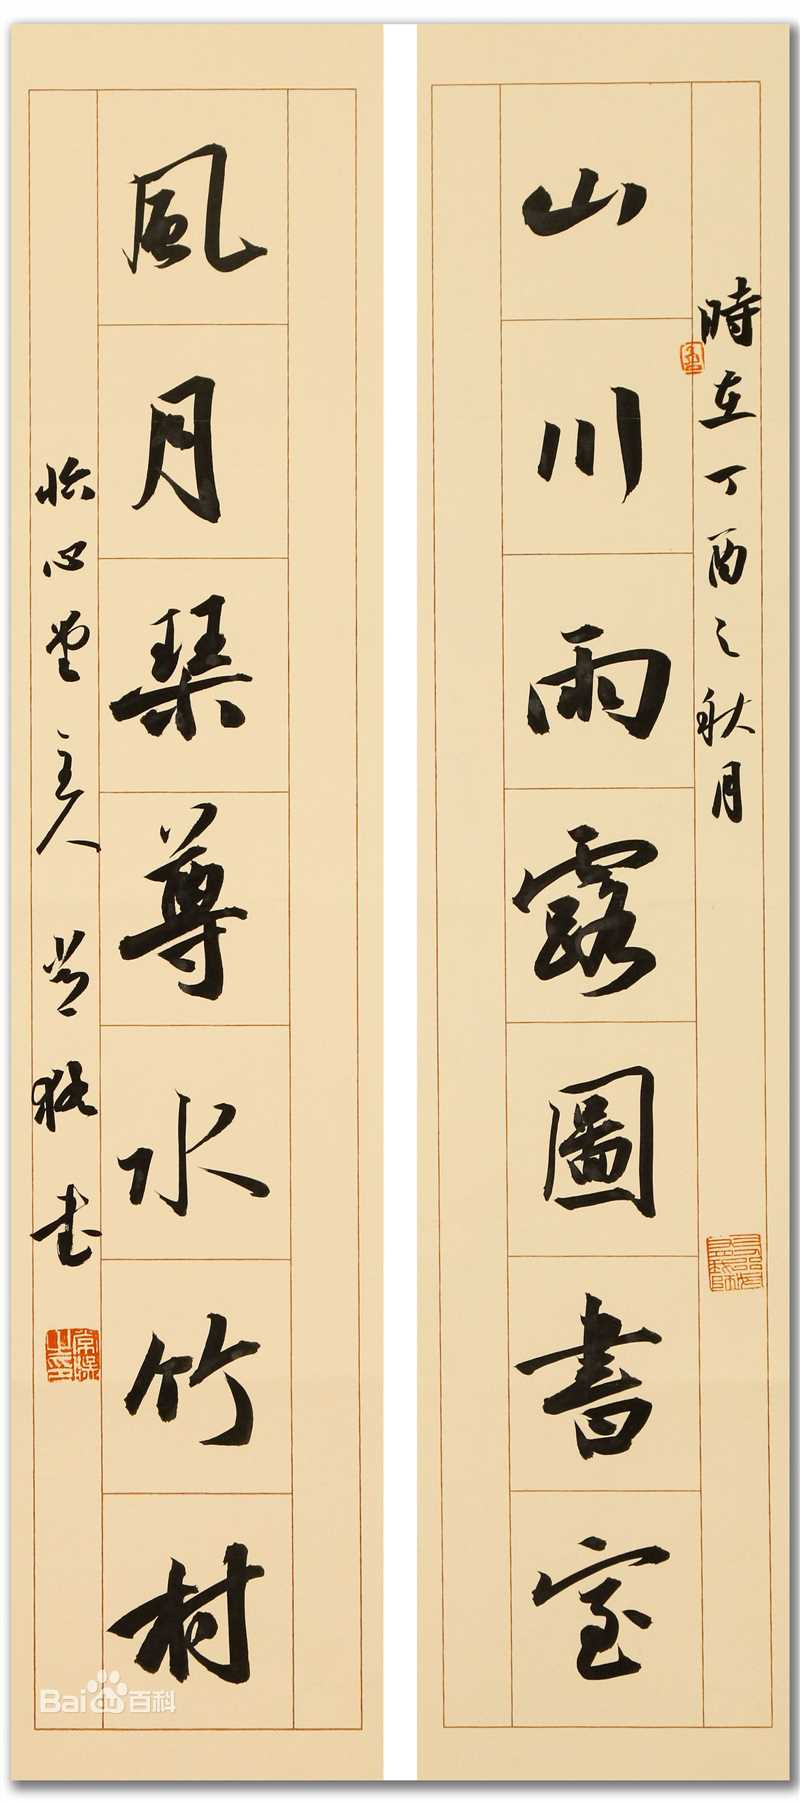 時在丁酉之秋月
山川雨露圖書室
風月琴尊水竹村
怡心堂主人
书
Bai du 百科